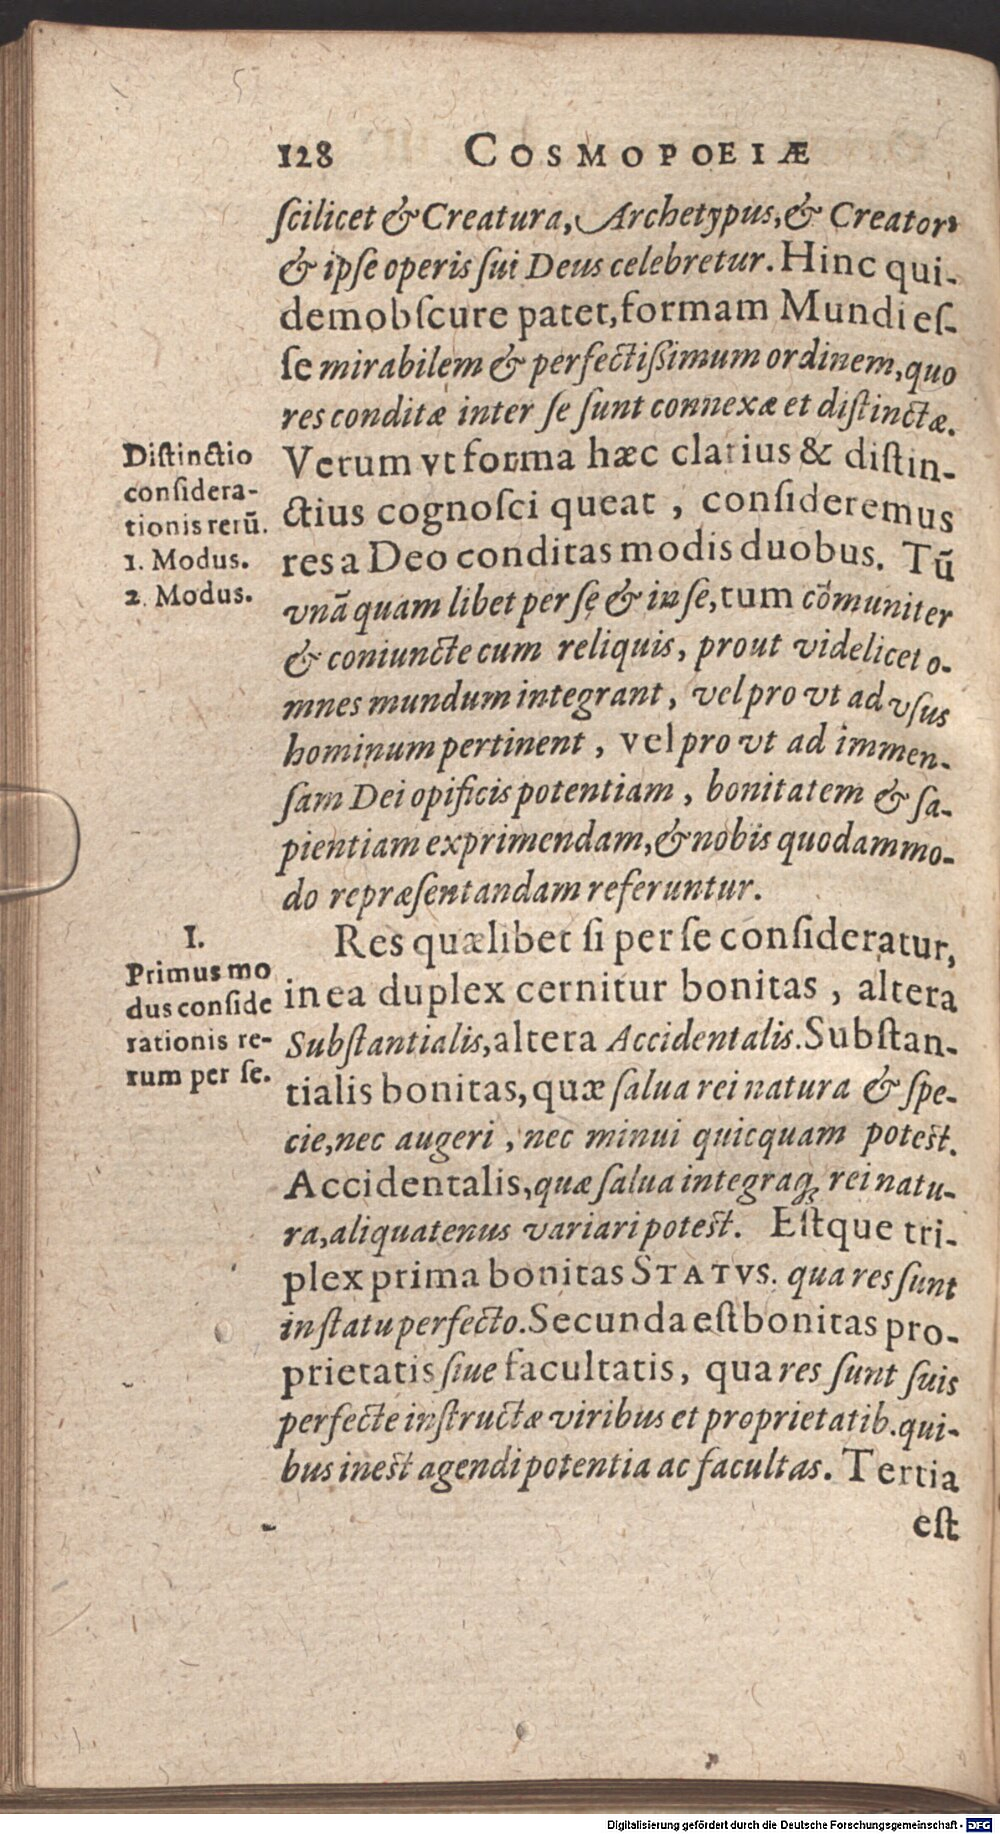 128 COSMOPOEIÆ
ſcilicet & Creatura, Archetypus, & Creator,
& ipſe operis ſui Deus celebretur. Hinc qui-
dem obſcure patet, formam Mundi eſ-
ſe mirabilem & perfectiſſimum ordinem, quo
res conditæ inter ſe ſunt connexæ et diſtinctæ.
Verum vt forma hæc clarius & diſtin-
ctius cognoſci queat, conſideremus
res a Deo conditas modis duobus. Tū
vnā quam libet per ſe & in ſe, tum cōmuniter
& coniuncte cum reliquis, prout videlicet o-
mnes mundum integrant, vel pro vt ad vſus
hominum pertinent, vel pro vt ad immen-
ſam Dei opificis potentiam, bonitatem & ſa-
pientiam exprimendam, & nobis quodammo-
do repræſentandam referuntur.
Diſtinctio
conſidera-
tionis rerū.
1. Modus.
2. Modus.
Res quælibet ſi per ſe conſideratur,
in ea duplex cernitur bonitas, altera
Subſtantialis, altera Accidentalis. Subſtan-
tialis bonitas, quæ ſalua rei natura & ſpe-
cie, nec augeri, nec minui quicquam poteſt.
Accidentalis, quæ ſalua integraq; rei natu-
ra, aliquatenus variari poteſt. Eſtque tri-
plex prima bonitas STATVS. qua res ſunt
in ſtatu perfecto. Secunda eſt bonitas pro-
prietatis ſiue facultatis, qua res ſunt ſuis
perfecte inſtructæ viribus et proprietatib. qui-
bus ineſt agendi potentia ac facultas. Tertia
I.
Primus mo
dus conſide
rationis re-
rum per ſe.
eſt
Digitalisierung gefördert durch die Deutsche Forschungsgemeinschaft - DFG